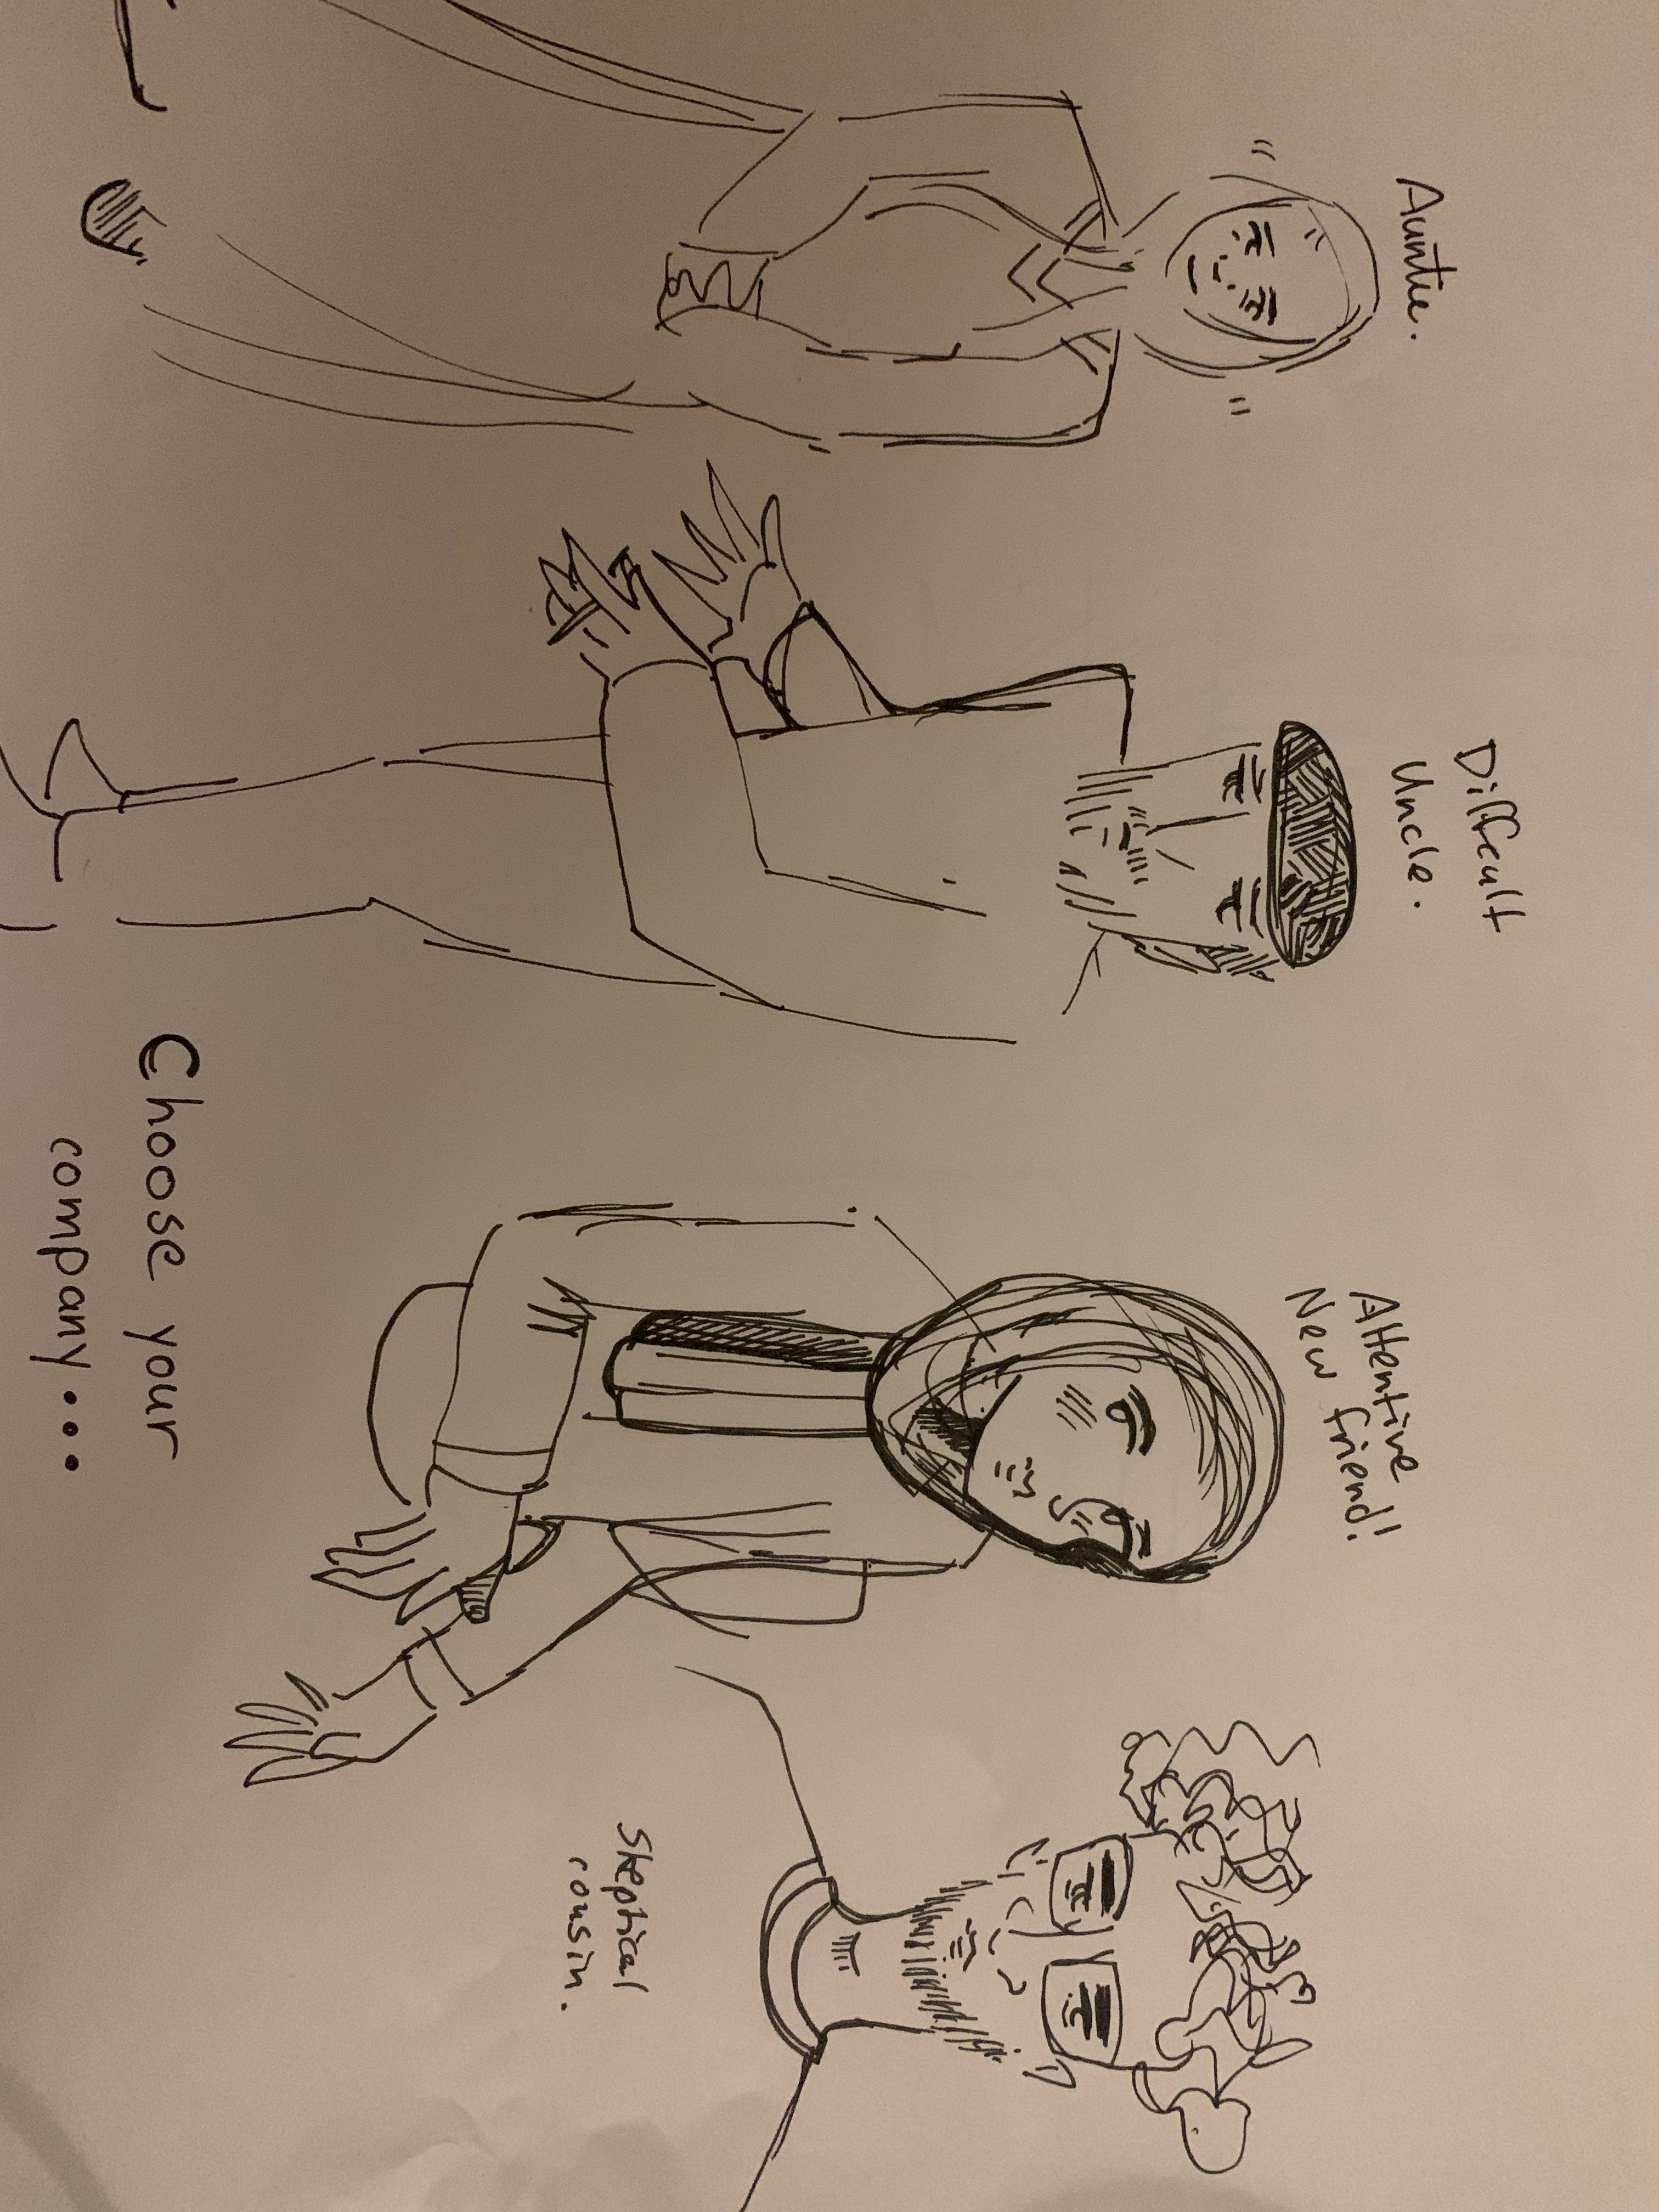 Auntie.
Difficult
Uncle.
Attentive
New friend!
Skeptical
cousin.
Choose your
company....